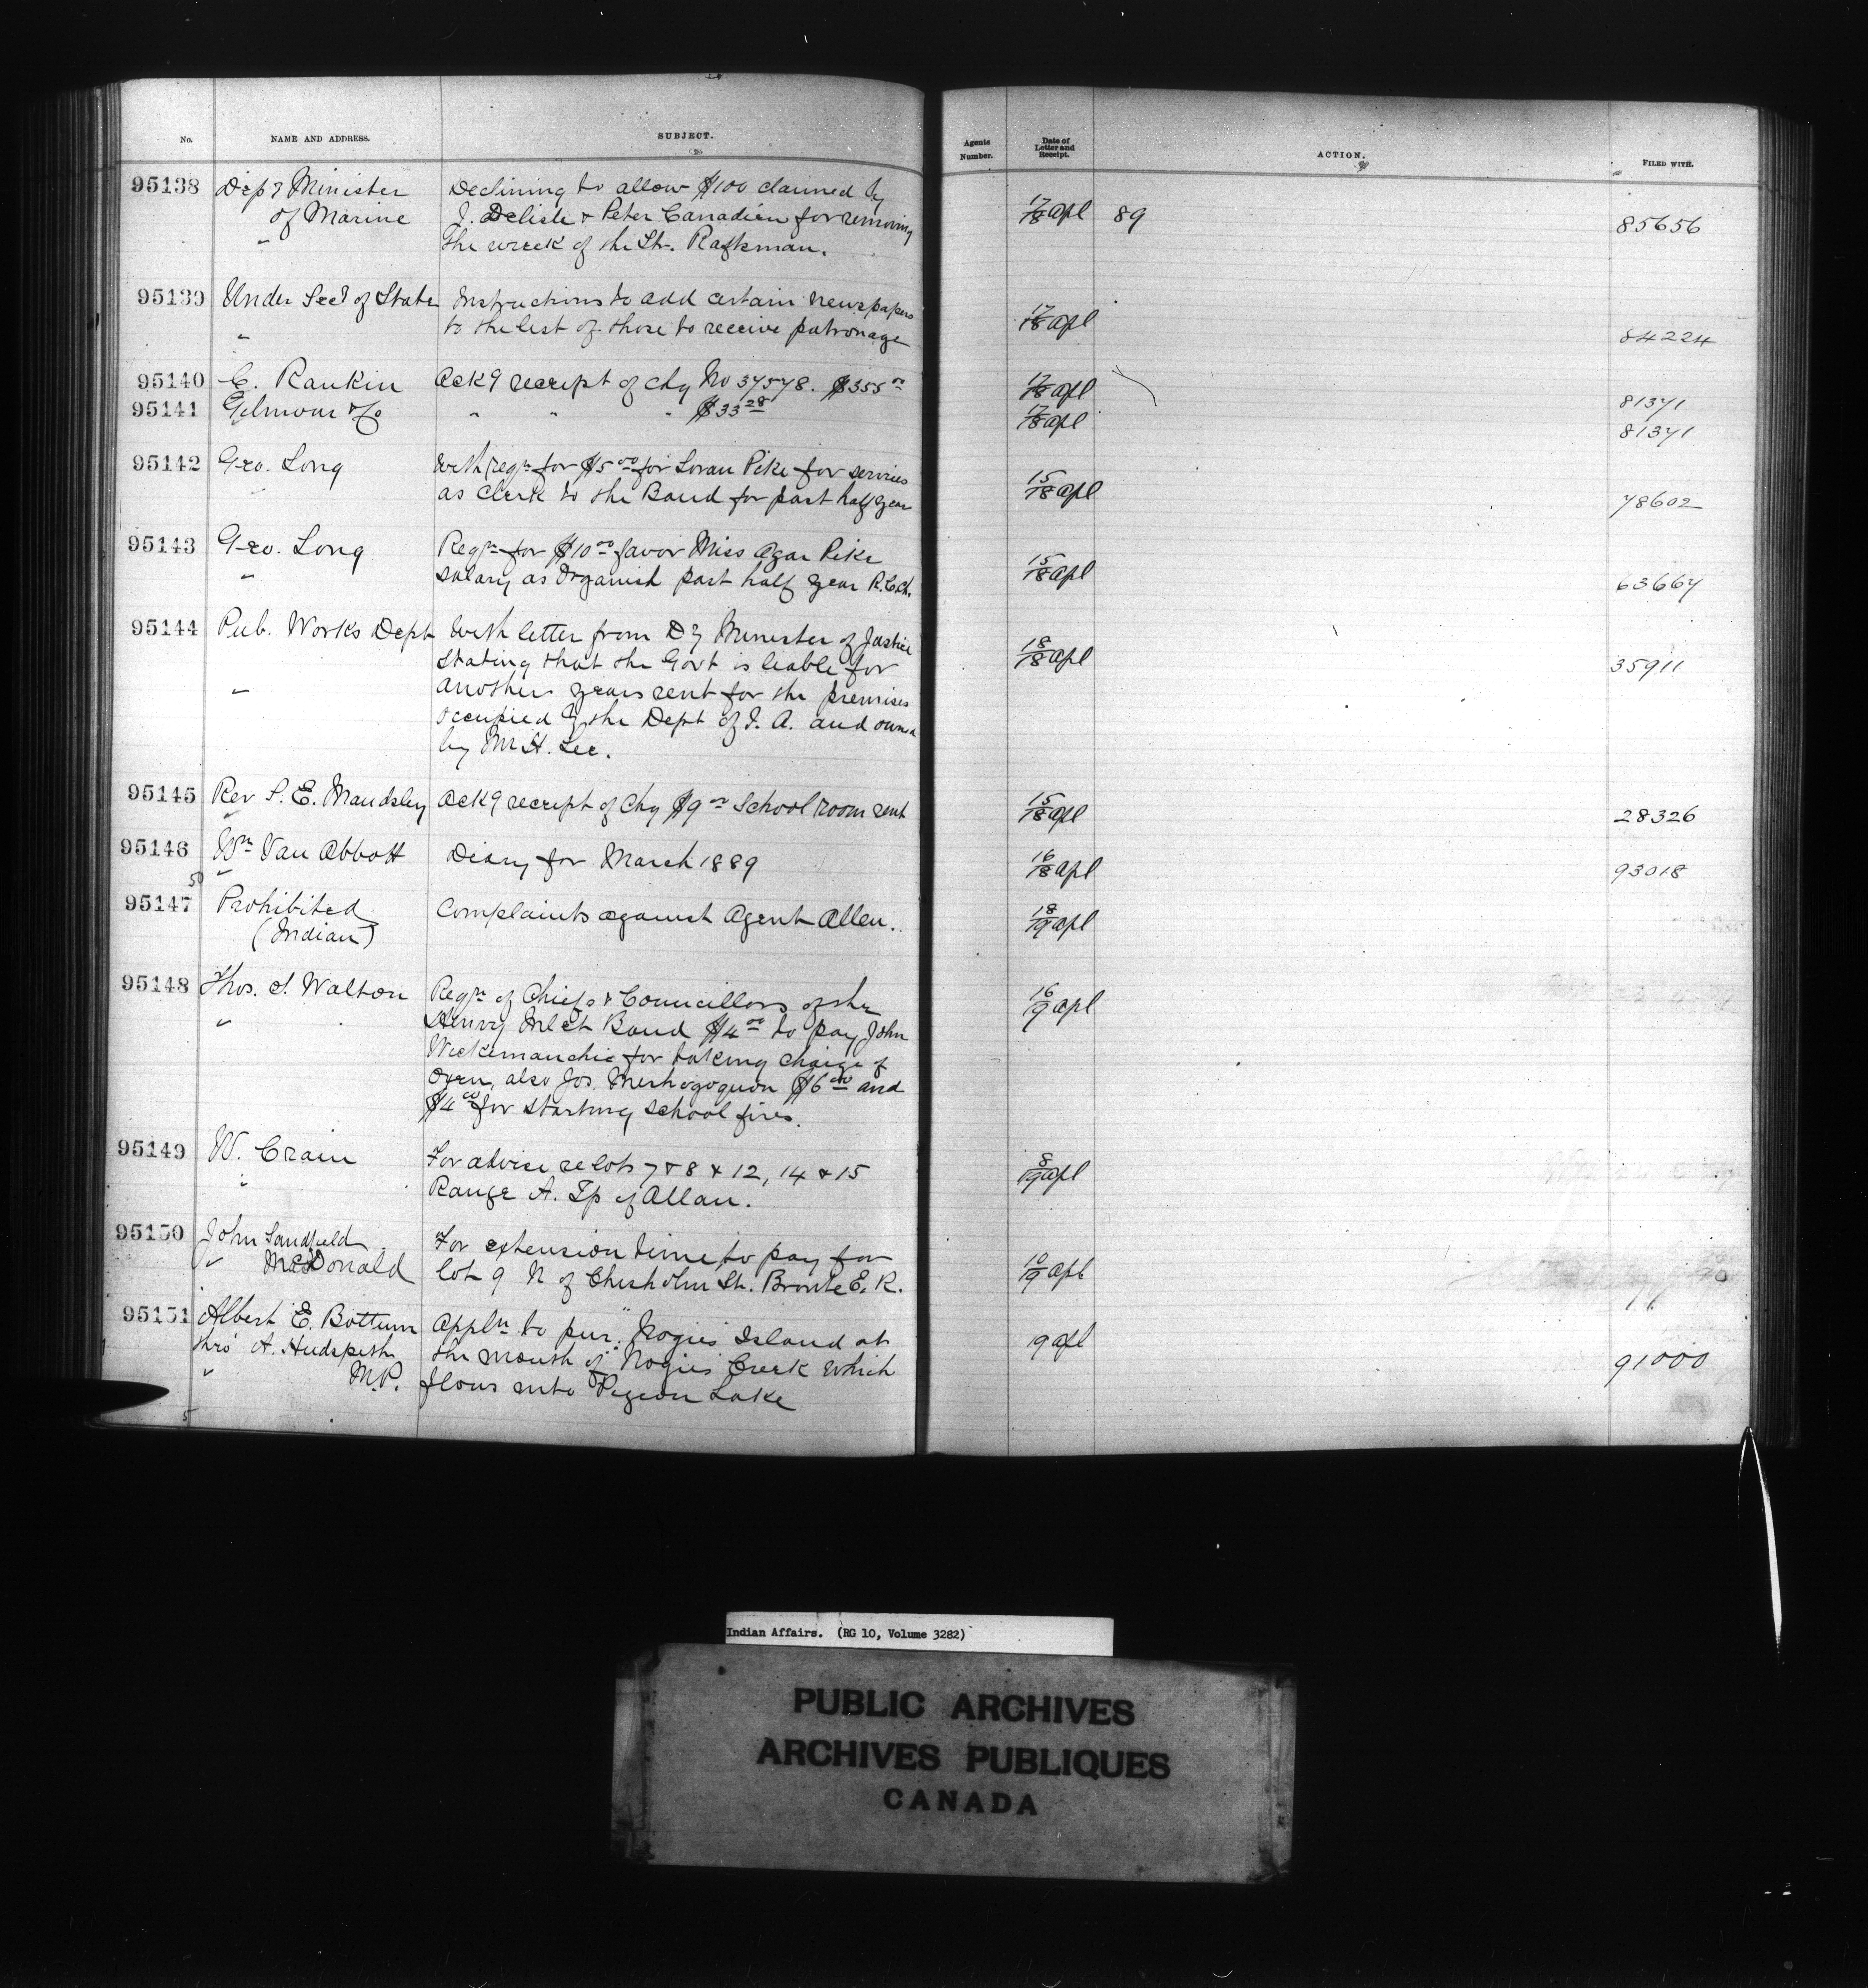 No. NAME AND ADDRESS. SUBJECT. Agents Number. Date of Letter and Receipt. ACTION. FILED WITH.
95138 Dep'y Minister Declining to allow $100 claimed by
of Marine J. Delisle & Peter Canadien for removing 17/18 apl 89 85656
" the wreck of the Str. Raftsman.
95139 Under Secy of State Instructions to add certain newspapers
" to the list of those to receive patronage 17/18 apl 84224
95140 C. Rankin Ackg receipt of chq No 37578. $355 00 17/18 apl 81371
95141 Gilmour & Co " " " $33 28 17/18 apl 81371
95142 Geo. Long With reqn for $5 00 for Loran Pike for services
" as Clerk to the Band for past half year 15/18 apl 78602
95143 Geo. Long Reqn for $10 00 favor Miss Agar Pike
" salary as Organist past half year R.C.Ch. 15/18 apl 63667
95144 Pub. Works Dept With letter from Dy Minister of Justice
stating that the Govt is liable for 18/18 apl 35911
" another years rent for the premises
occupied by the Dept of I. A. and owned
by Mr H. Lee.
95145 Rev S. E. Maudsley Ackg receipt of Chq $9 00 School room rent 15/18 apl 28326
"
95146 Wm Van Abbott Diary for March 1889 16/18 apl 93018
50 "
95147 Prohibited Complaints against Agent Allen. 18/19 apl
(Indian)
95148 Thos. S. Walton Reqn of Chiefs & Councillors of the 16/19 apl
" Henvy Inlet Band $4 00 to pay John
for taking charge of
Oxen, also Jos. $6 00 and
$4 00 for starting school fires.
95149 W. Crain For advise re lots 7 & 8 & 12, 14 & 15 8/19 apl
" Range A. Tp of Allan.
95150 John Sandfield For extension time to pay for
" McDonald lot 9 N of Chisholm St. Bronte E. R. 10/19 apl
95151 Albert E. Bottum Appln to pur. "Nogies Island at 19 apl
thro' A. Hudspeth the mouth of "Nogies Creek which 91000
" M.P. flows into Pigeon Lake
5
Indian Affairs. (RG 10, Volume 3282)
PUBLIC ARCHIVES
ARCHIVES PUBLIQUES
CANADA